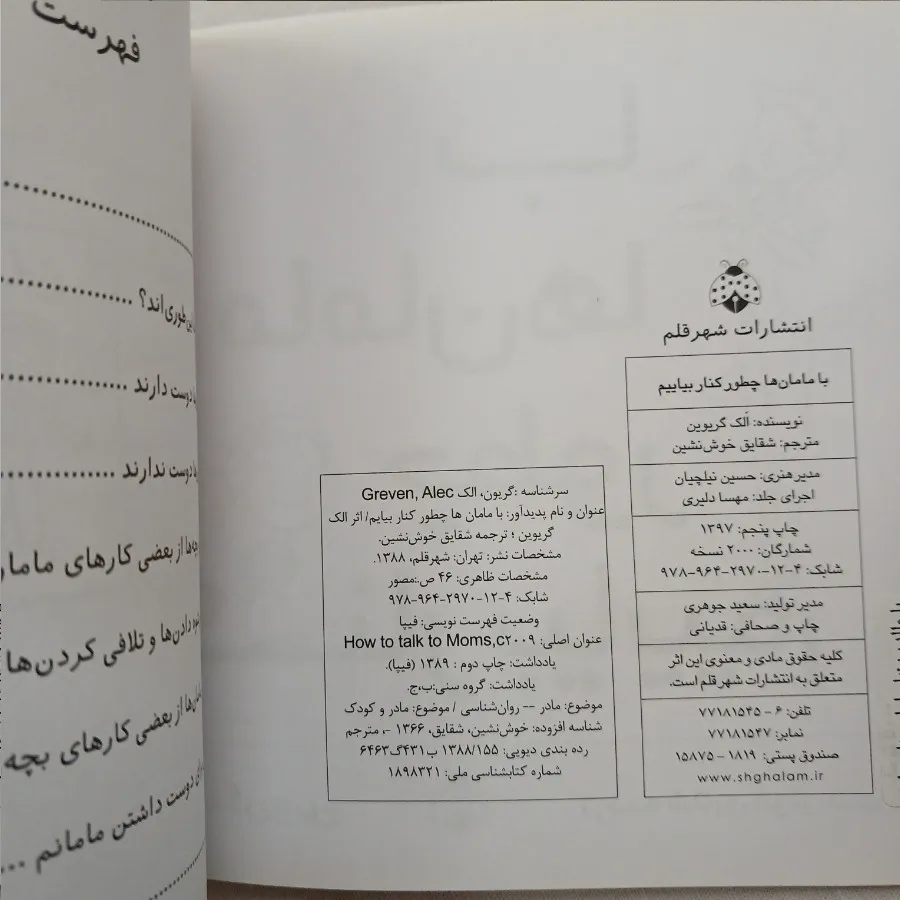 انتشارات شهرقلم
با مامان‌ها چطور کنار بیاییم
نویسنده: اَلک گریوین
مترجم: شقایق خوش‌نشین
مدیر هنری: حسین نیلچیان
اجرای جلد: مهسا دلیری
چاپ پنجم: ۱۳۹۷
شمارگان: ۲۰۰۰ نسخه
شابک: ۴-۱۲-۲۹۷۰-۹۶۴-۹۷۸
مدیر تولید: سعید جوهری
چاپ و صحافی: قدیانی
کلیه حقوق مادی و معنوی این اثر
متعلق به انتشارات شهر قلم است.
تلفن: ۶ - ۷۷۱۸۱۵۴۵
نمابر: ۷۷۱۸۱۵۴۷
صندوق پستی: ۱۸۱۹ - ۱۵۸۷۵
www.shghalam.ir
سرشناسه :گریون، الک Greven, Alec
عنوان و نام پدیدآور: با مامان ها چطور کنار بیایم/ اثر الک
گریوین ؛ ترجمه شقایق خوش‌نشین.
مشخصات نشر: تهران: شهرقلم، ۱۳۸۸.
مشخصات ظاهری: ۴۶ ص.:مصور
شابک: ۴-۱۲-۲۹۷۰-۹۶۴-۹۷۸
وضعیت فهرست نویسی: فیپا
عنوان اصلی: How to talk to Moms,c۲۰۰۹
یادداشت: چاپ دوم : ۱۳۸۹ (فیپا).
یادداشت: گروه سنی:ب،ج.
موضوع: مادر -- روان‌شناسی / موضوع: مادر و کودک
شناسه افزوده: خوش‌نشین، شقایق، ۱۳۶۶ -، مترجم
رده بندی دیویی: ۱۳۸۸/۱۵۵ ب۴۳۱گ۶۴۶۳
شماره کتابشناسی ملی: ۱۸۹۸۳۲۱
فهرست
طوری‌اند؟
دوست دارند
دوست ندارند
از بعضی کارهای
دادن‌ها و تلافی کردن‌ها
از بعضی کارهای بچه
دوست داشتن مامانم